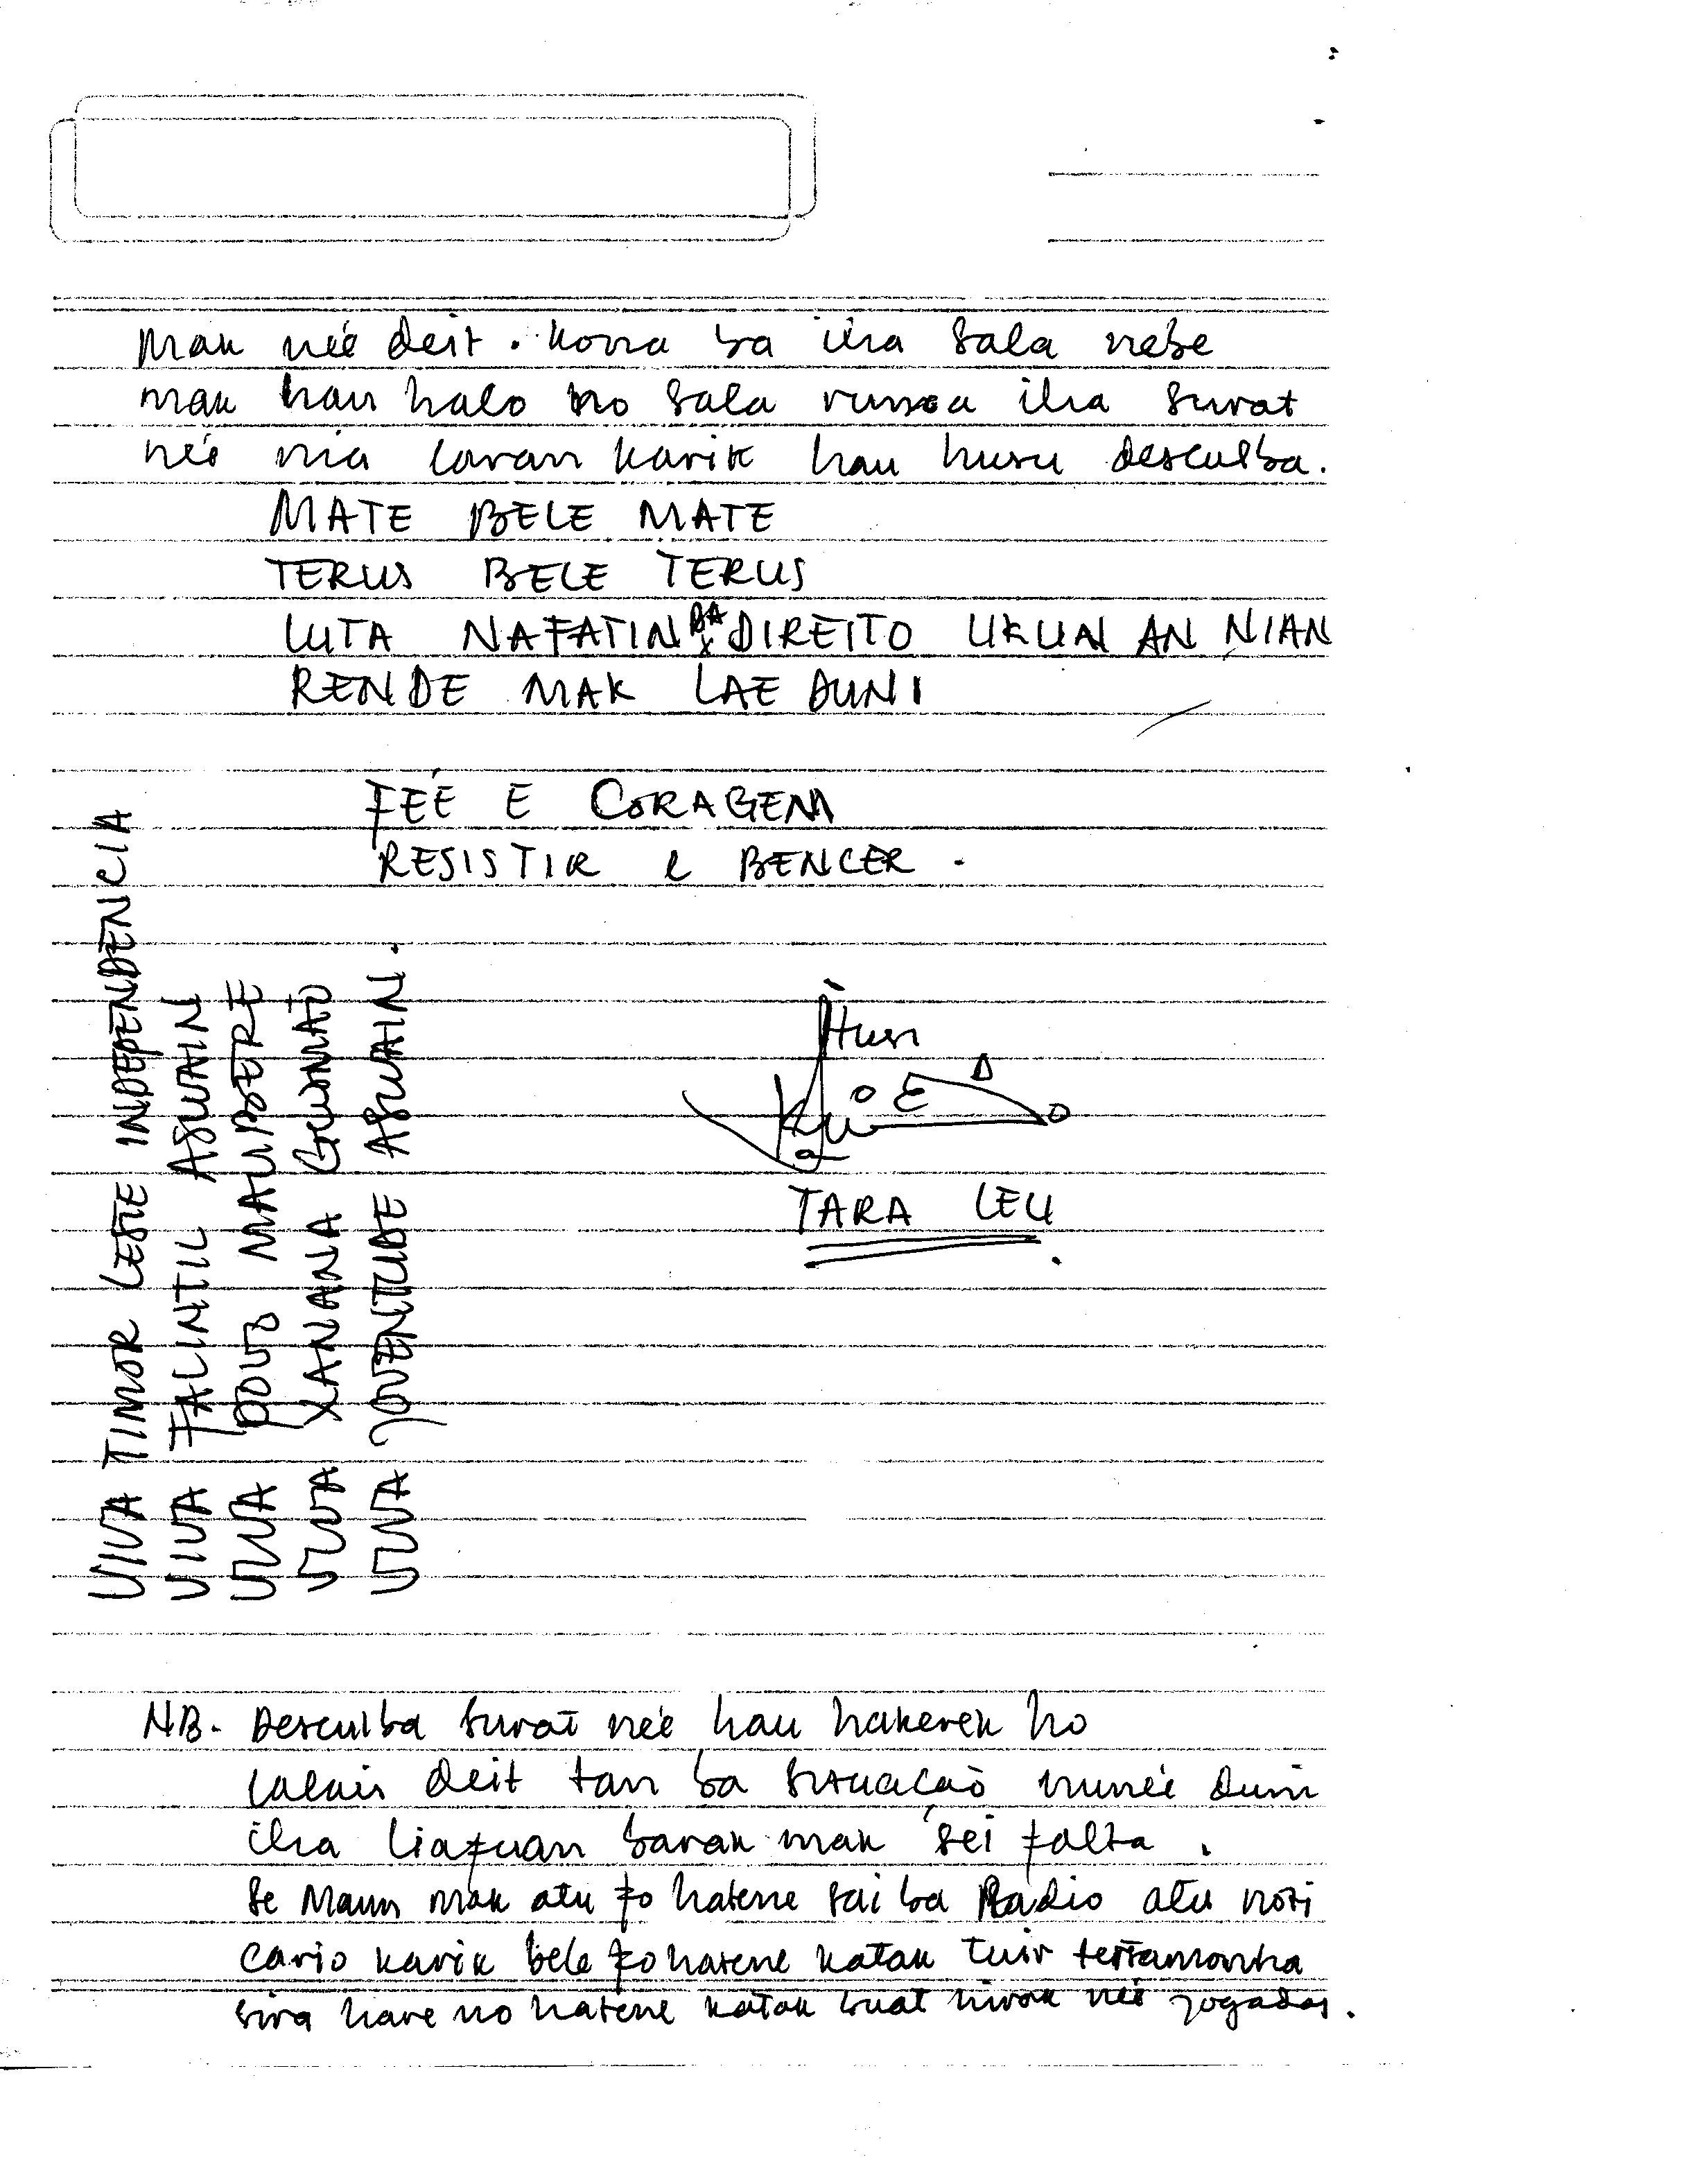 mak neé deit. Kona ba iha sala nebe
mak hau halo no sala ruma iha surat
neé nia laran karik hau husu desculba.
MATE BELE MATE
TERUS BELE TERUS
LUTA NAFATIN BA DIREITO UKUN AN NIAN
RENDE MAK LAE DUNI
FEÉ E CORAGEM
RESISTIR e BENCER.
VIVA TIMOR LESTE INDEPENDENCIA
VIVA FALINTIL ASWAIN
VIVA POVO MAUBERE
VIVA XANANA GUSMAÕ
VIVA JOVENTUDE ASWAIN.
Husi
TARA LEU
NB. Desculba surat neé hau hakerek ho
lalais deit tan ba situacaõ nuneé duni
iha liafuan barak mak sei falta.
Se Maun mak atu fo hatene sai ba Radio atu noti
cario karik bele fo hatene katak tuir testamonha
sira hare no hatene katak buat hirak neé jogadas.